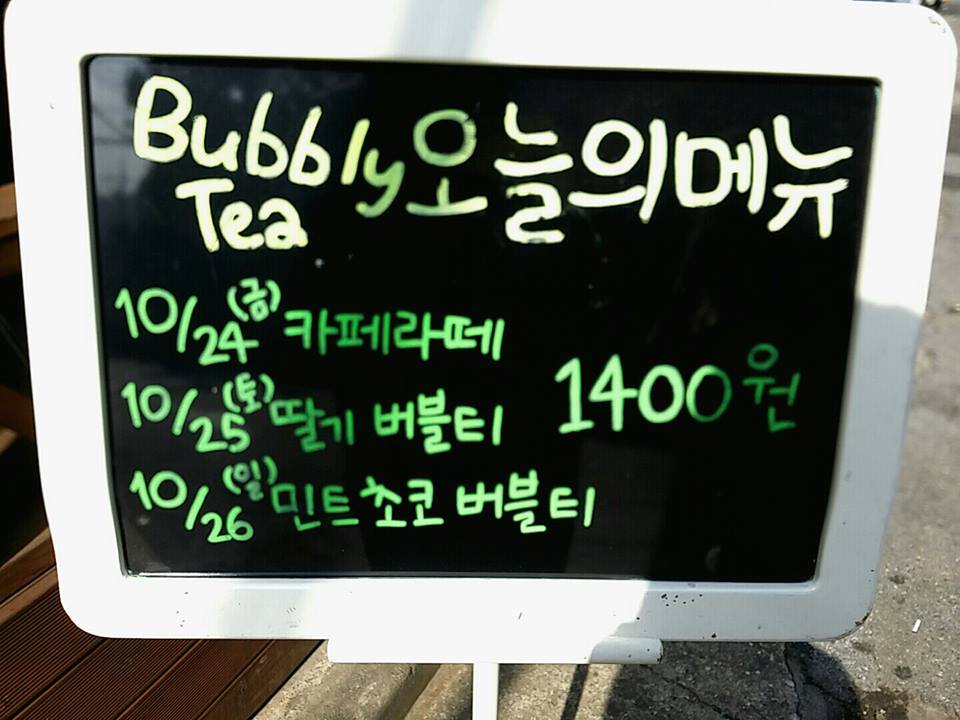 Bubbly 오늘의 메뉴
Tea
10/24 (금) 카페라떼
10/25 (토) 딸기 버블티
1400원
10/26 (일) 민트초코 버블티